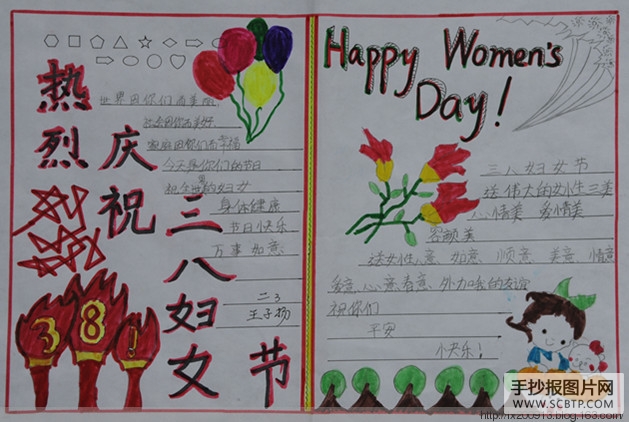 热烈庆祝三八妇女节
世界因你们而美丽
社会因你而美好
家庭因你们而幸福
今天是你们的节日
祝全世界的妇女
身体健康
节日快乐
万事如意
二3
王子扬
38!
Happy Women's
Day!
三八妇女节
送伟大的女性三美
心情美 爱情美
容颜美
送女性心意、如意、顺意、美意、情意
爱意、心意、春意、外加我的
祝你们
平安
小快乐!
手抄报图片网
WWW.SCBTP.COM
http://fx200913.blog.163.com